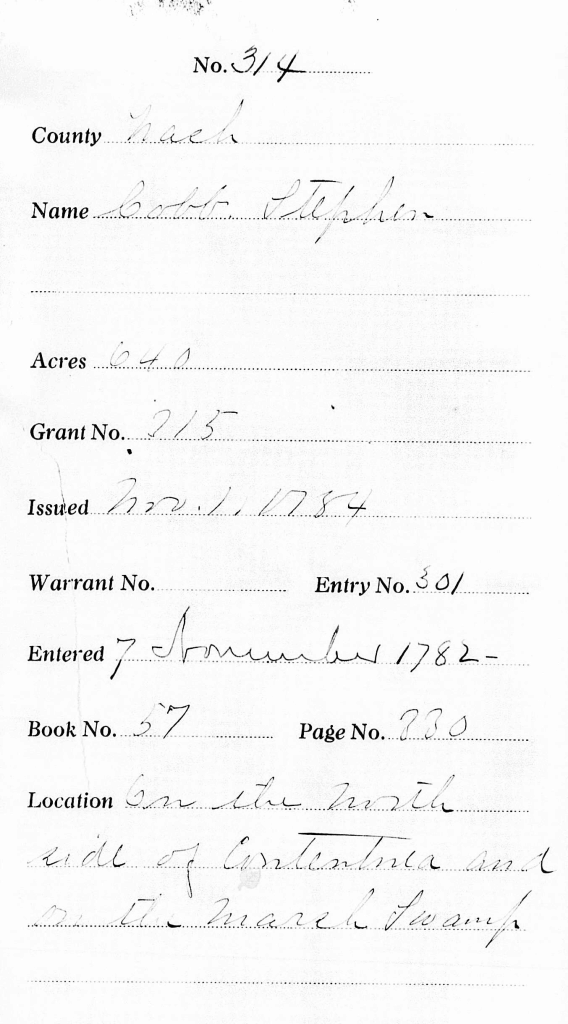 No. 314
County Nash
Name Cobb. Stephen
Acres 640
Grant No. 215
Issued Nov. 1, 1784
Warrant No. Entry No. 301
Entered 7 November 1782-
Book No. 57 Page No.
Location On the North
side of Contentnea and
on the Marsh Swamp